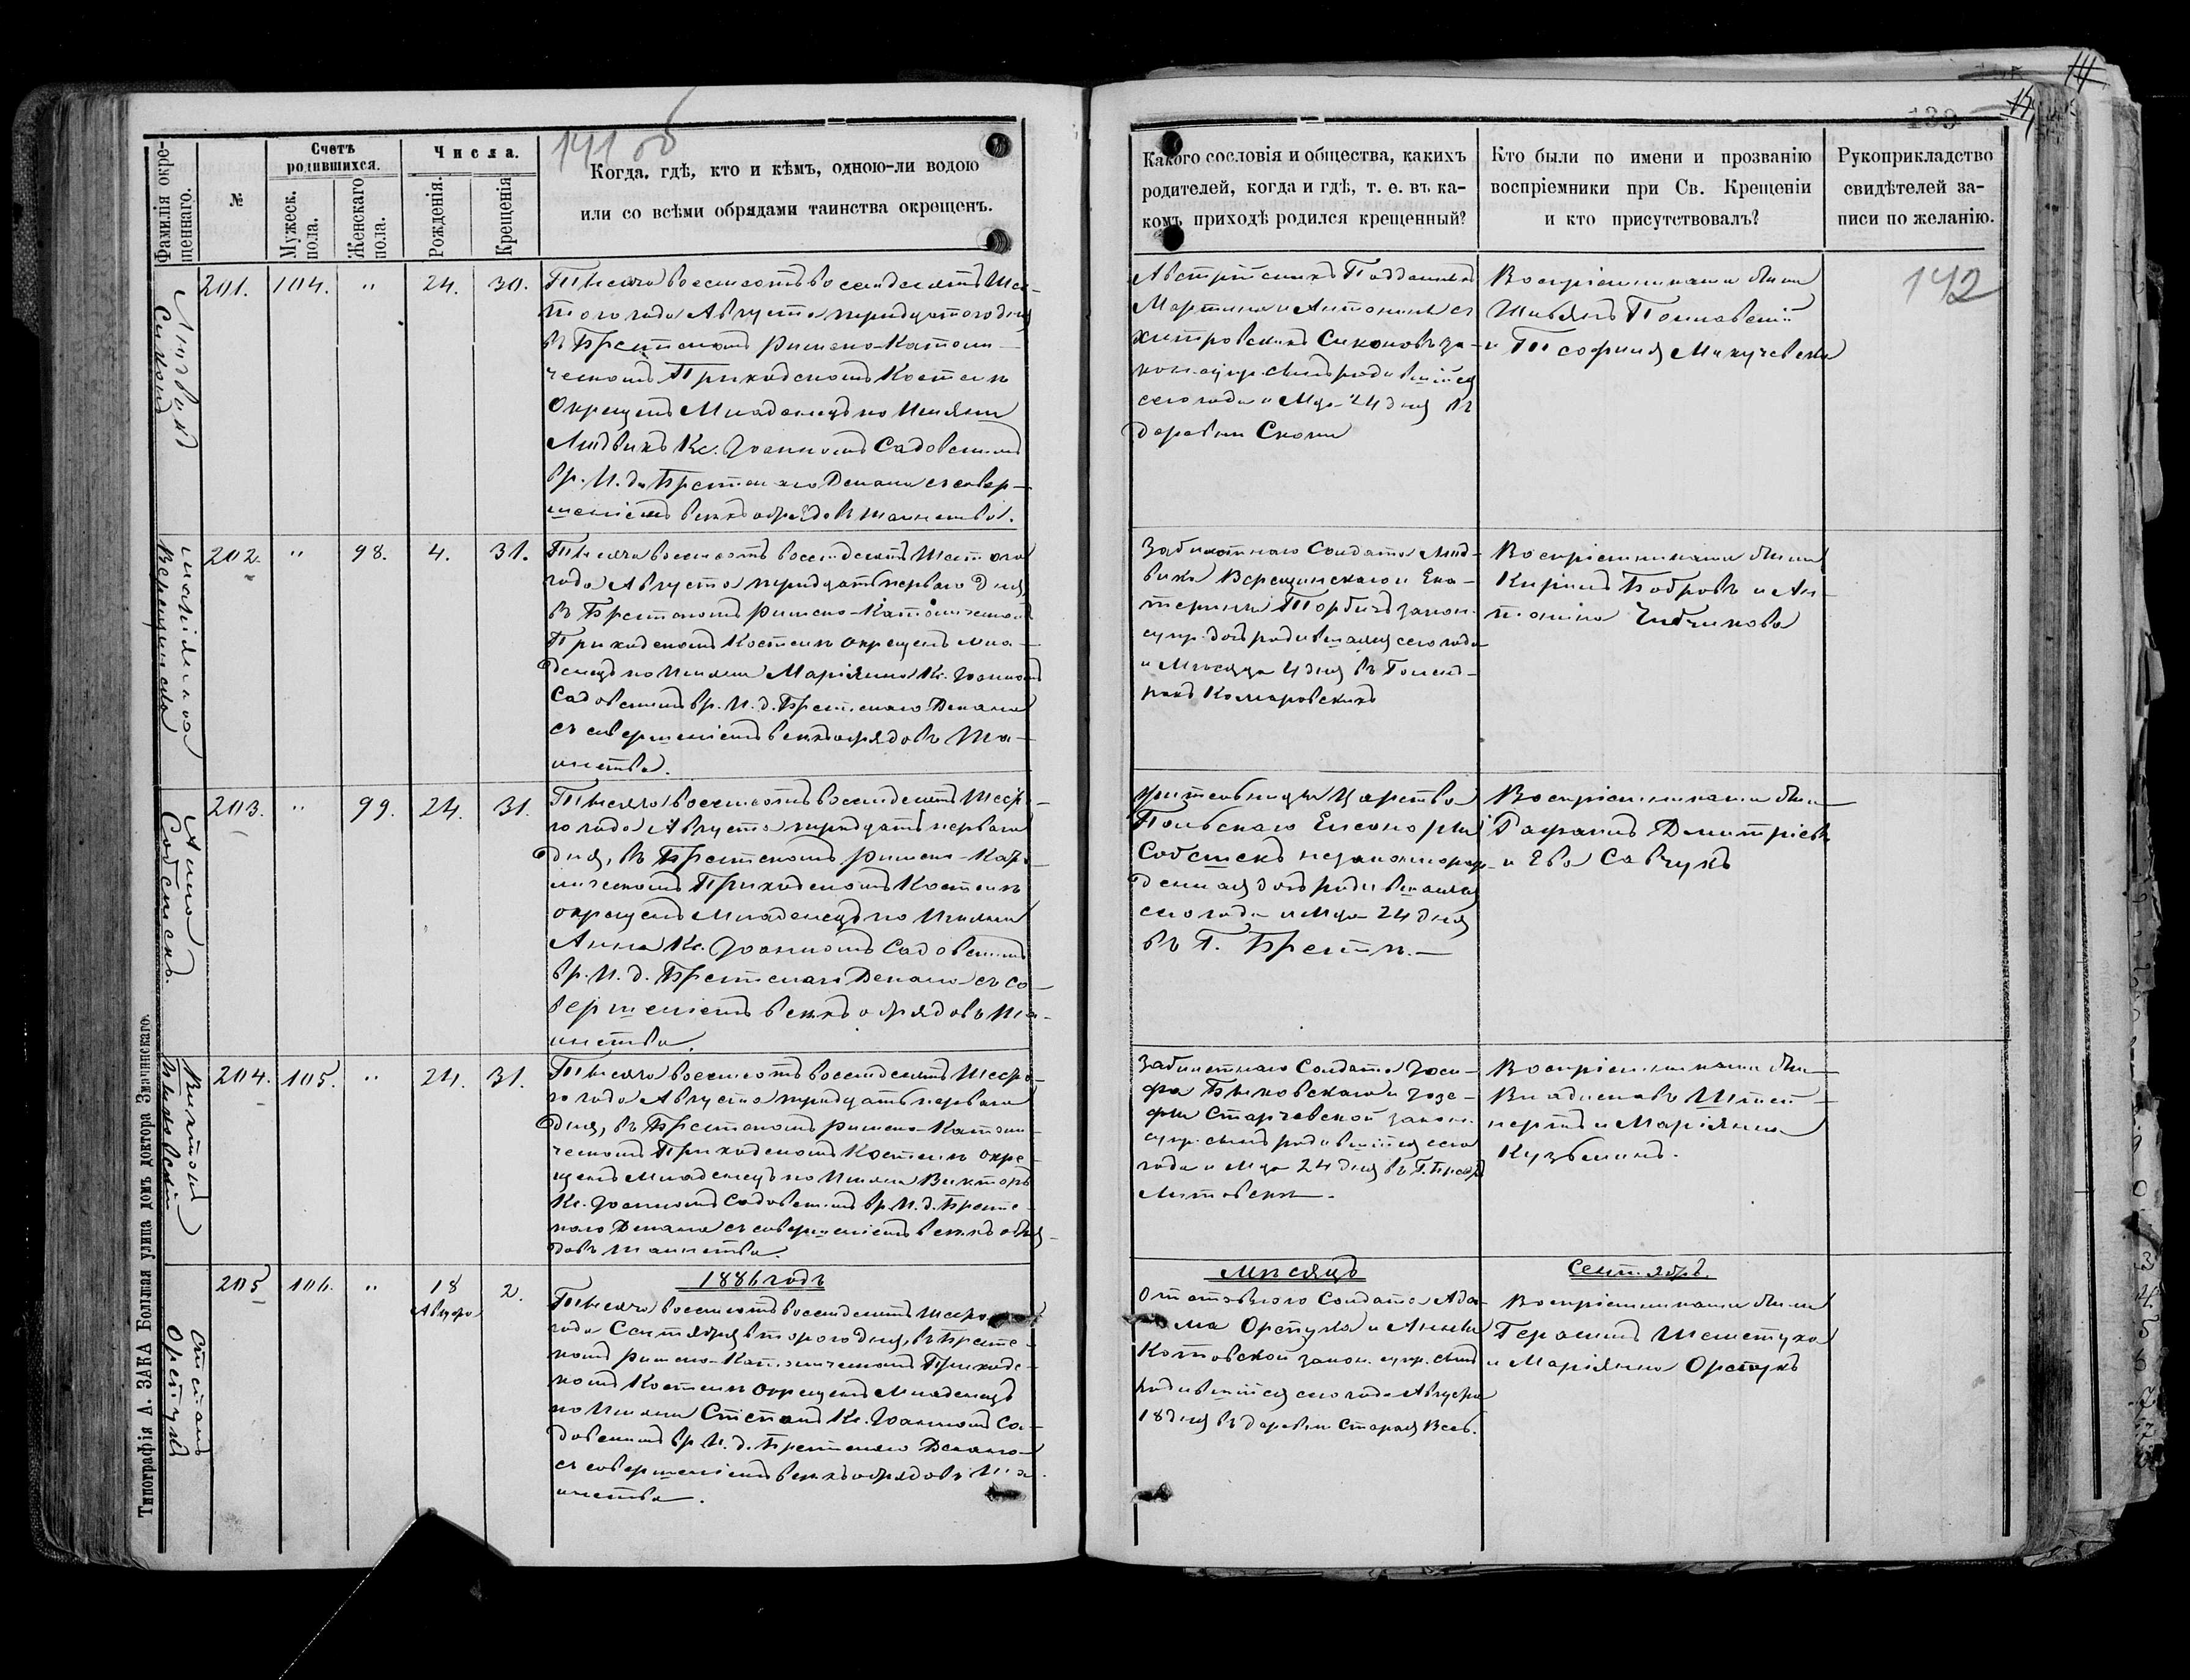 141 об
Фамилія окре-
щеннаго.
№
Счетъ
родившихся.
Мужеск.
пола.
Женскаго
пола.
Числа.
Рожденія.
Крещенія
Когда, гдѣ, кто и кѣмъ, одною-ли водою
или со всѣми обрядами таинства окрещенъ.
Людвикъ
201. 104. " 24. 30.
Тысяча восемсотъ восемдесятъ шес-
того года Августа тридцатого дня
въ Брестскомъ Римско-Католи-
ческомъ Приходскомъ Костелѣ
Окрещенъ Младенецъ по Имени
Людвикъ Кс. Іоанномъ Садовскимъ
вр. И. д. Брестскаго Декана съ совер-
шеніемъ всѣхъ обрядовъ таинства.
Маріянна
Верещинска
202. " 98. 4. 31.
Тысяча восемсотъ восемдесятъ шестого
года Августа тридцать перваго дня,
въ Брестскомъ Римско-Католическомъ
Приходскомъ Костелѣ окрещенъ мла-
денецъ по Имени Маріянна Кс. Іоанномъ
Садовскимъ вр. И. д. Брестскаго Декана
съ совершеніемъ всѣхъ обрядовъ Та-
инства.
Анна
Собстекъ.
203. " 99. 24. 31.
Тысяча восемсотъ восемдесятъ шесто-
го года Августа тридцать перваго
дня, въ Брестскомъ Римско-Като-
лическомъ Приходскомъ Костелѣ
окрещенъ Младенецъ по Имени
Анна Кс. Іоанномъ Садовскимъ
вр. И. д. Брестскаго Декана съ со-
вершеніемъ всѣхъ обрядовъ Та-
инства.
Викторъ
Быковскій
204. 105. " 24. 31.
Тысяча восемсотъ восемдесятъ шесто-
го года Августа тридцать перваго
дня, въ Брестскомъ Римско-Католи-
ческомъ Приходскомъ Костелѣ окре-
щенъ Младенецъ по Имени Викторъ
Кс. Іоанномъ Садовскимъ вр. И. д. Брестс-
каго Декана съ совершеніемъ всѣхъ обря-
довъ таинства.
Степанъ
205 106. " 18 2.
Августа
1886 годъ
Тысяча восемсотъ восемдесятъ шесто
года Сентября второго дня, въ Брестс-
комъ Римско-Католическомъ Приходс-
комъ Костелѣ окрещенъ Младенецъ
по Имени Степанъ Кс. Іоанномъ Са-
довскимъ вр. И. д. Брестскаго Декана
съ совершеніемъ всѣхъ обрядовъ Та-
инства.
Типографія А. ЗАКА Большая улица домъ доктора Змачинскаго.
139
Какого сословія и общества, какихъ
родителей, когда и гдѣ, т. е. въ ка-
комъ приходѣ родился крещенный?
Кто были по имени и прозванію
воспріемники при Св. Крещеніи
и кто присутствовалъ?
Рукоприкладство
свидѣтелей за-
писи по желанію.
142
Австрійскихъ Подданныхъ
Мартина и Антонины съ
за-
кон. супр. сынъ родившійся
сего года и М-ца 24 дня въ
деревни Скоки
Воспріемниками были
и Теофиля
Забилетнаго Солдата Люд-
вика Верещинскаго и Ека-
терины Торбичъ закон.
супр. дочь родившаяся сего года
и Мѣсяца 4 дня въ Голенд-
рахъ Комаровскихъ
Воспріемниками были
Кирилъ Бобровъ и Ан-
тонина
Жительницы Царства
Польскаго Елеоноры
Собстекъ незаконнорож-
денная дочь родившаяся
сего года и М-ца 24 дня
въ Г. Брестѣ.—
Воспріемниками были
Рафаилъ Дмитріевъ
и Эва Савчукъ
Забилетнаго Солдата Іоси-
фа Быковскаго и Юзе-
фы Старчевской закон.
супр. сынъ родившійся сего
года и М-ца 24 дня въ Г. Брестѣ
Литовскѣ.
Воспріемниками были
Владиславъ
и Маріянна
Кузьминъ.
Мѣсяцъ
Сентябрь.
Отставного Солдата Ада-
ма и Анны
Котовской закон. супр. сынъ
родившійся сего года Августа
18 дня въ деревни Старая Весь.
Воспріемниками были
Герасимъ
и Маріянна